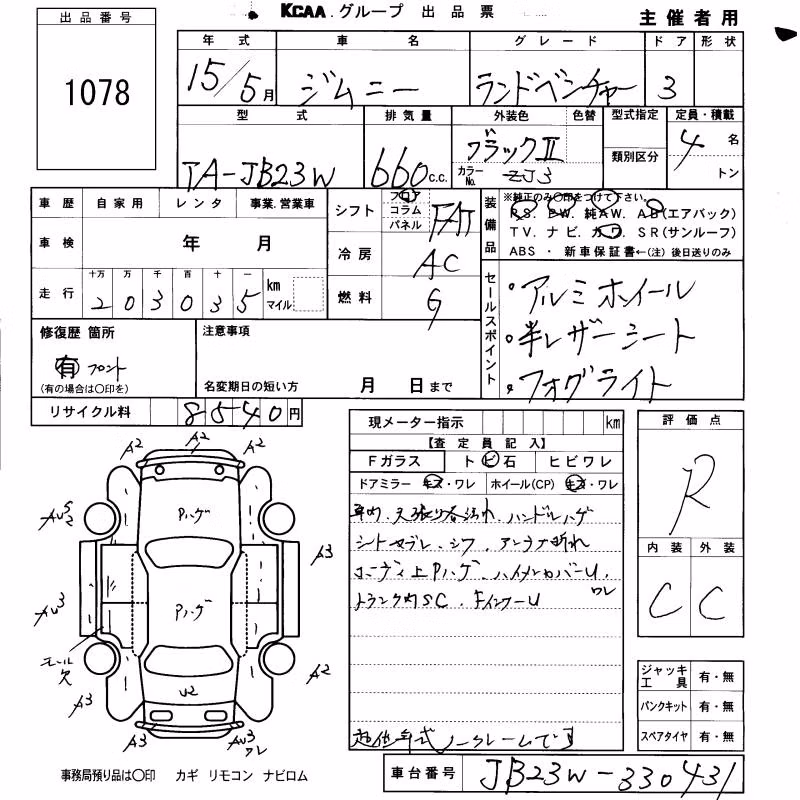 KCAA.グループ 出品票
主催者用
出品番号
1078
年式 車名 グレード ドア 形状
15/5月 ジムニー ランドベンチャー 3
型式 排気量 外装色 色替 型式指定 定員・積載
TA-JB23W 660c.c. ブラックⅡ 類別区分 4名
カラーNo. ZJ3 トン
車歴 自家用 レンタ 事業.営業車
シフト フロア コラム パネル FAT
装備品 ※純正のみ○印をつけて下さい。
P.S. P.W. 純A.W. A.B(エアバック)
T.V. ナビ. カワ. S.R(サンルーフ)
ABS ・ 新車保証書←(注) 後日送りのみ
車検 年 月
冷房 AC
走行 十万 万 千 百 十 一
203035 km マイル
燃料 G
セールスポイント
・アルミホイール
・半レザーシート
・フォグライト
修復歴 箇所
有 フロント
(有の場合は○印を)
注意事項
名変期日の短い方 月 日まで
リサイクル料 8540円
現メーター指示 km
【査定員記入】
Fガラス トビ石 ヒビワレ
ドアミラー キズ・ワレ ホイール(CP) キズ・ワレ
車内、天張り各汚れ、ハンドルハゲ
シートヤブレ、シワ、アンテナ折れ
ボディ上Pハゲ、
ワレ
トランク内SC、FインナーU
評価点
R
内装 外装
C C
ジャッキ工具 有・無
パンクキット 有・無
スペアタイヤ 有・無
A2 A2 A2
Pハゲ
A3
Pハゲ
モール欠
A2
U2
A3
A3
ワレ
事務局預り品は○印 カギ リモコン ナビロム
車台番号 JB23W-330431